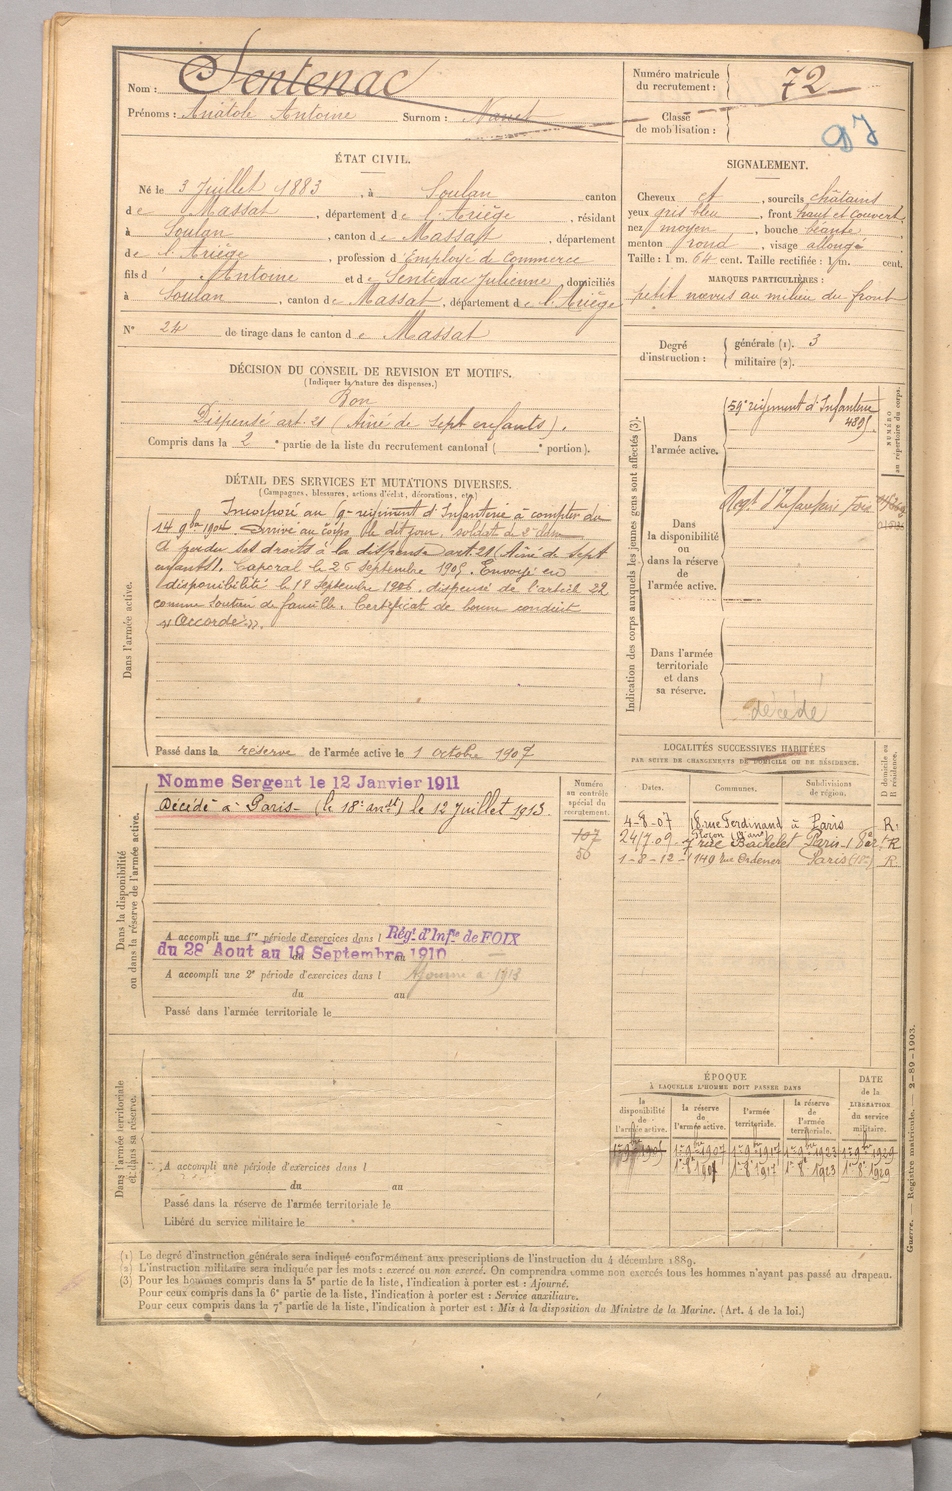 Nom : Sentenac
Prénoms : Anatole Antoine Surnom :
Numéro matricule du recrutement : 72
Classe de mobilisation :
ÉTAT CIVIL.
Né le 3 Juillet 1883, à Soulan canton
de Massat, département de l'Ariège, résidant
à Soulan, canton de Massat, département
de l'Ariège, profession d'Employé de Commerce
fils d'Antoine et de Sentenac Julienne, domiciliés
à Soulan, canton de Massat, département de l'Ariège
N° 24 de tirage dans le canton de Massat
SIGNALEMENT.
Cheveux et, sourcils châtains
yeux gris bleu, front haut et couvert,
nez moyen, bouche béante,
menton rond, visage allongé
Taille : 1 m. 64 cent. Taille rectifiée : 1 m. cent.
MARQUES PARTICULIÈRES :
petit nævus au milieu du front
Degré d'instruction : générale (1). 3
militaire (2).
DÉCISION DU CONSEIL DE REVISION ET MOTIFS.
(Indiquer la nature des dispenses.)
Bon
Dispensé art. 21 (Aîné de sept enfants).
Compris dans la 2e partie de la liste du recrutement cantonal ( e portion).
DÉTAIL DES SERVICES ET MUTATIONS DIVERSES.
(Campagnes, blessures, actions d'éclat, décorations, etc.)
Dans l'armée active.
Incorporé au 59e régiment d'Infanterie à compter du
14 9bre 1904. Arrivé au corps le dit jour, soldat de 2e classe
A perdu ses droits à la dispense art. 21 (Aîné de sept
enfants). Caporal le 26 Septembre 1905. Envoyé en
disponibilité le 18 Septembre 1906. dispensé de l'article 22
comme soutien de famille. Certificat de bonne conduite
"Accordé".
Passé dans la réserve de l'armée active le 1 octobre 1907
Indication des corps auxquels les jeunes gens sont affectés (3).
NUMÉRO au répertoire du corps.
Dans l'armée active.
59e régiment d'Infanterie
Dans la disponibilité ou dans la réserve de l'armée active.
Regt d'Infanterie Foix
Dans l'armée territoriale et dans sa réserve.
décédé
Dans la disponibilité ou dans la réserve de l'armée active.
Nomme Sergent le 12 Janvier 1911
Décédé à Paris (le 18e arrdt) le 12 Juillet 1913.
Numéro au contrôle spécial du recrutement.
107
50
A accompli une 1re période d'exercices dans l Régt d'Infie de FOIX
du 28 Aout au 19 Septembre au 1910
A accompli une 2e période d'exercices dans l Ajourné à 1913
du au
Passé dans l'armée territoriale le
LOCALITÉS SUCCESSIVES HABITÉES
PAR SUITE DE CHANGEMENTS DE DOMICILE OU DE RÉSIDENCE.
Dates. Communes. Subdivisions de région. D domicile ou R résidence.
4-8-07 18 rue Ferdinand à Paris R.
24/7 09 7 rue Bachelet Paris R
1-8-12 140 rue Ordener Paris R.
ÉPOQUE
À LAQUELLE L'HOMME DOIT PASSER DANS
DATE de la LIBÉRATION du service militaire.
la disponibilité de l'armée active. la réserve de l'armée active. l'armée territoriale. la réserve de l'armée territoriale.
Dans l'armée territoriale et dans sa réserve.
A accompli une période d'exercices dans l
du au
Passé dans la réserve de l'armée territoriale le
Libéré du service militaire le
(1) Le degré d'instruction générale sera indiqué conformément aux prescriptions de l'instruction du 4 décembre 1889.
(2) L'instruction militaire sera indiquée par les mots : exercé ou non exercé. On comprendra comme non exercés tous les hommes n'ayant pas passé au drapeau.
(3) Pour les hommes compris dans la 5e partie de la liste, l'indication à porter est : Ajourné.
Pour ceux compris dans la 6e partie de la liste, l'indication à porter est : Service auxiliaire.
Pour ceux compris dans la 7e partie de la liste, l'indication à porter est : Mis à la disposition du Ministre de la Marine. (Art. 4 de la loi.)
Guerre. — Registre matricule. — 2-89-1903.